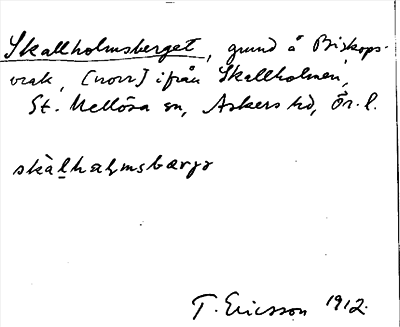 Skallholmsberget, grund å Biskops-
vrak, [norr] ifrån Skallholmen,
St. Mellösa sn, Askers hd, Ör. l.
skàlhalmsbærjə
T. Ericsson 1912.